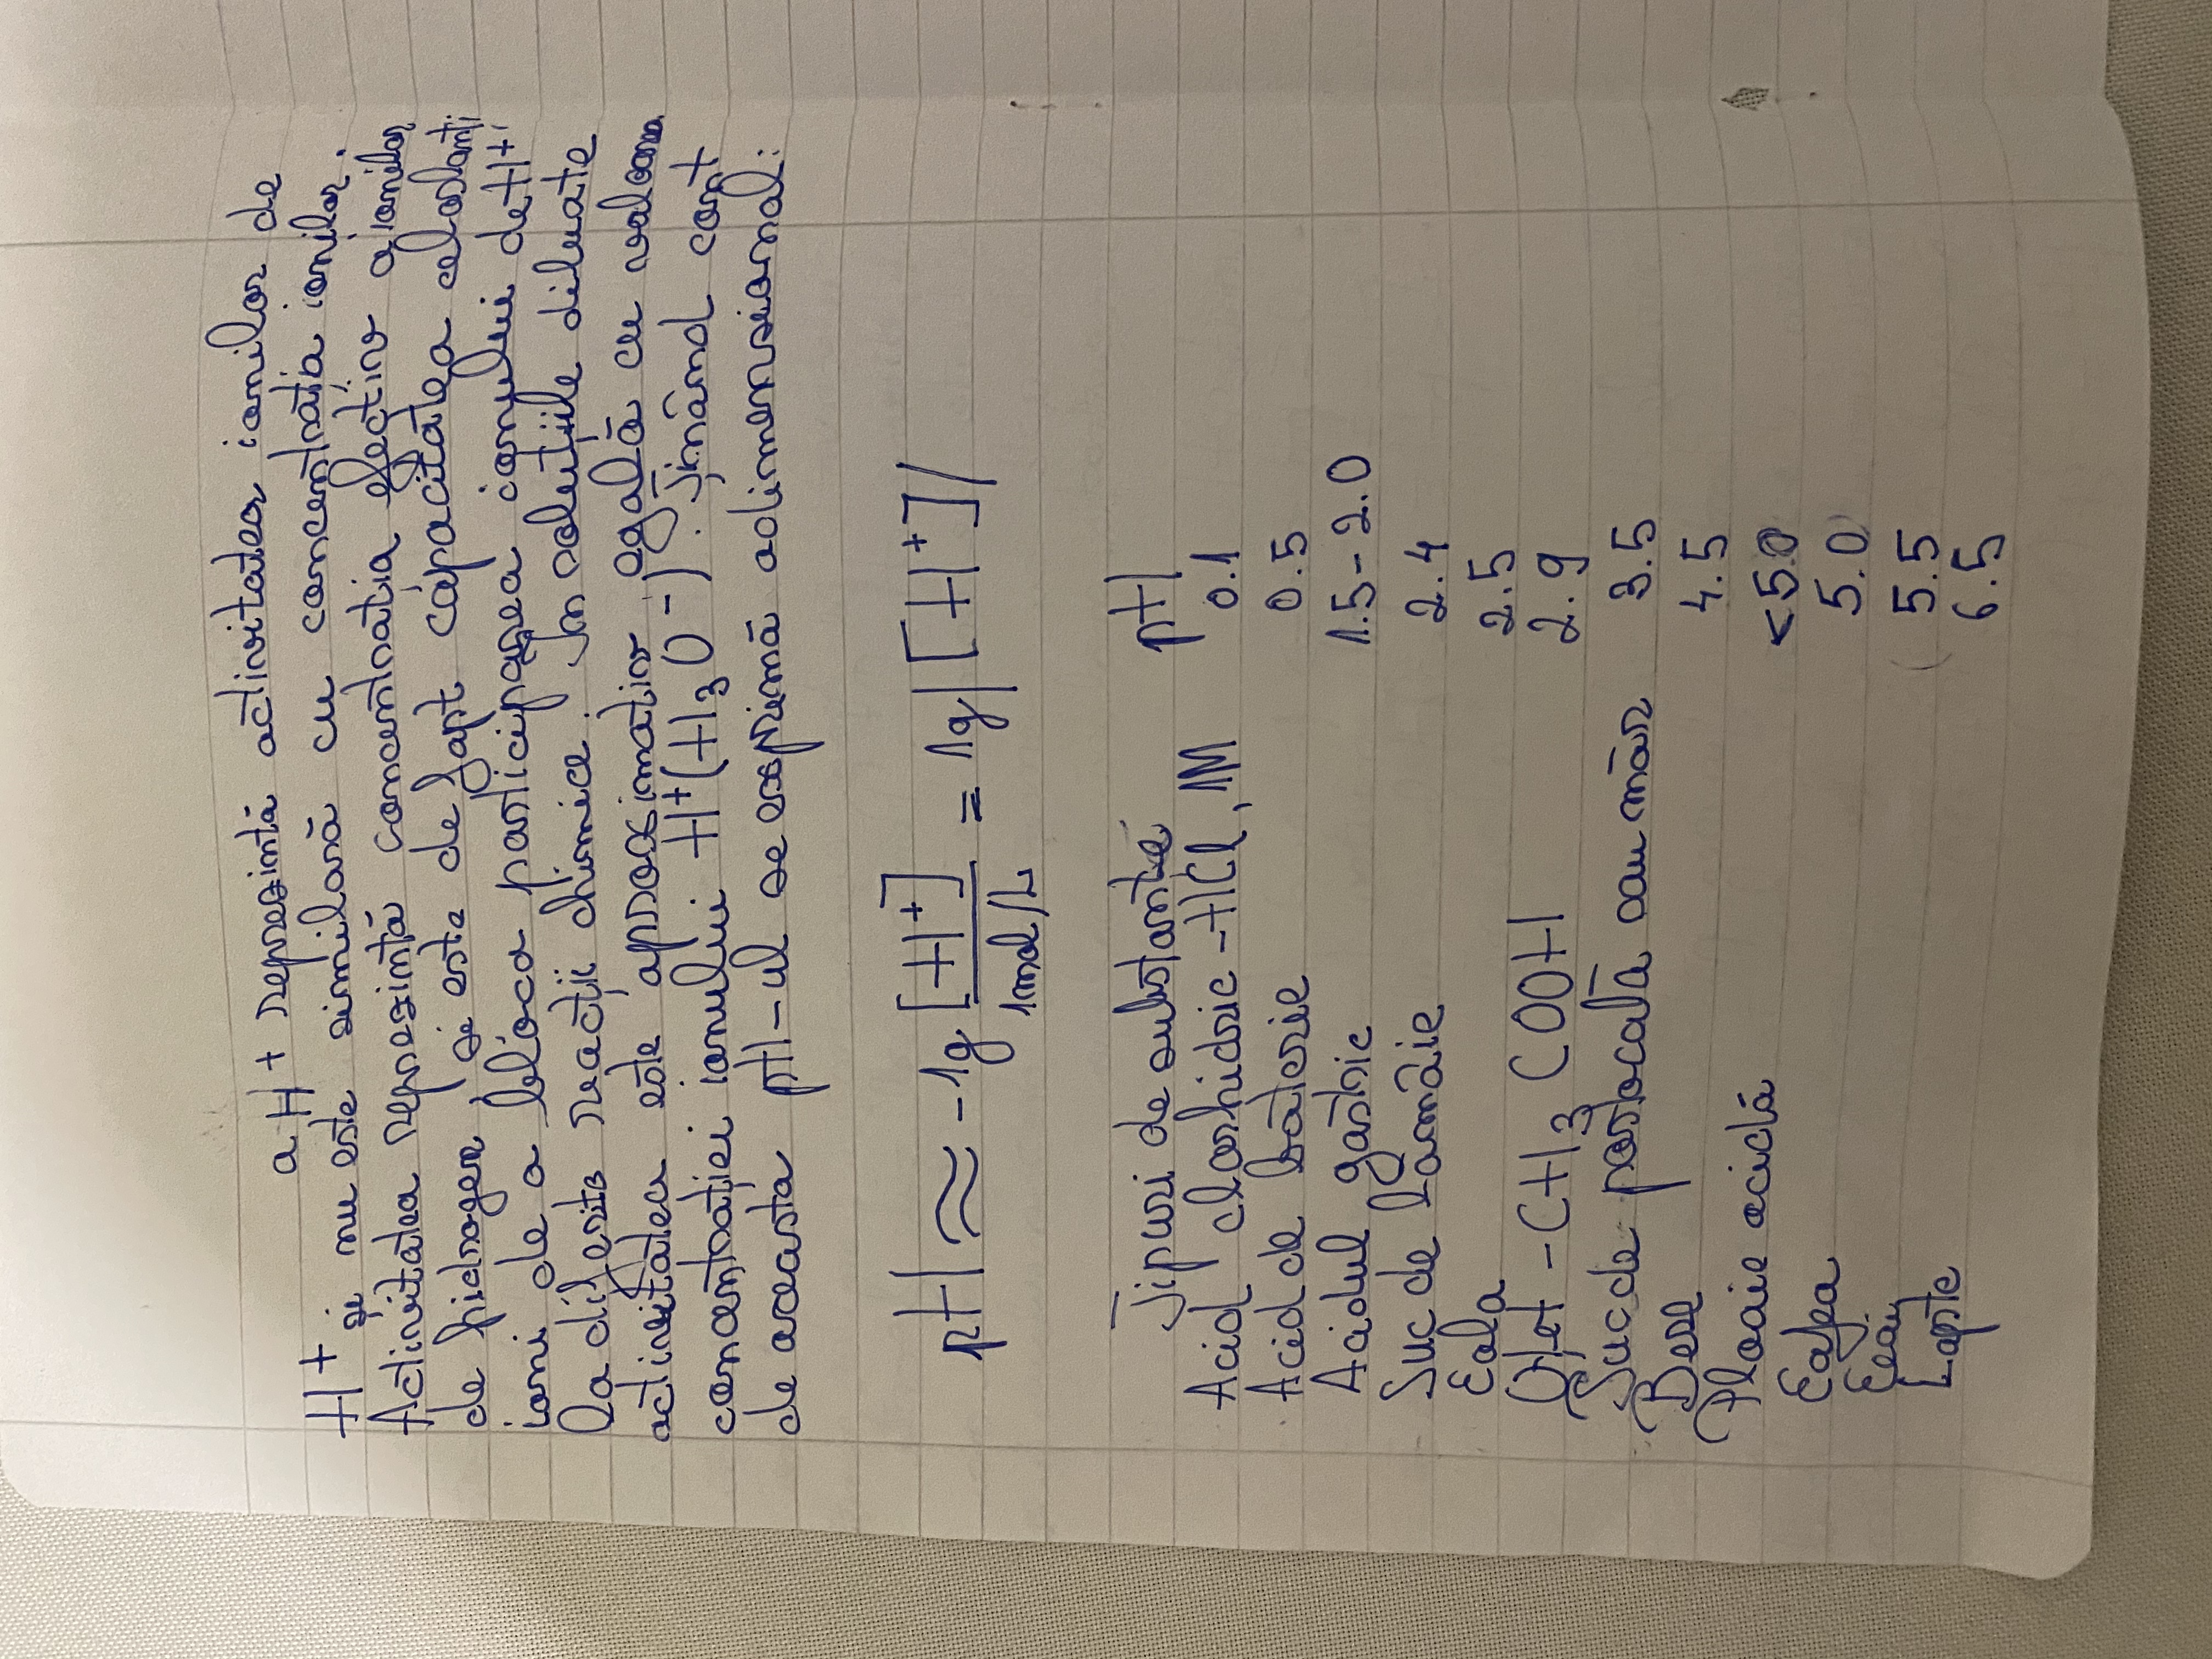 a H+ reprezintă activitatea ionilor de
H+ și nu este similară cu concentrația ionilor.
Activitatea reprezintă concentratia efectivă a ionilor
de hidrogen și este de fapt capacitatea celorlanți
ioni de a bloca participarea ionului de H+
la diferite reacții chimice. In solutiile diluate
activitatea este aproximativ egală cu valoarea
concentrației ionului H+(H3O-). Ținând cont
de aceasta pH-ul se exprimă adimensional:
pH ≈ -lg [H+] / 1mol/L = lg |[H+]|
Tipuri de substanțe pH
Acid clorhidric -HCl, 1M 0.1
Acid de baterie 0.5
Acidul gastric 1.5-2.0
Suc de lămâie 2.4
Cola 2.5
Oțet -CH3 COOH 2.9
Suc de portocală sau măr 3.5
Bere 4.5
Ploaie acidă <5.0
Cafea 5.0
Ceai 5.5
Lapte 6.5